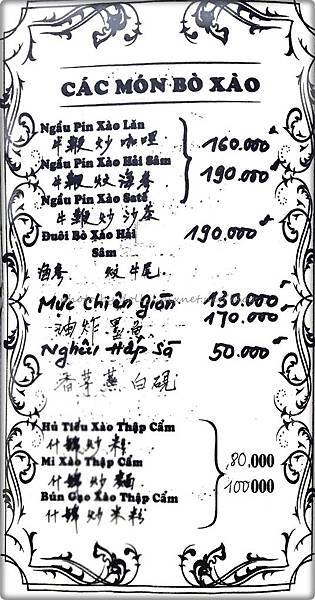 CÁC MÓN BÒ XÀO
Ngẩu Pín Xào Lăn
牛鞭炒咖哩
160.000đ
Ngẩu Pín Xào Hải Sâm
牛鞭炆海參
190.000đ
Ngẩu Pín Xào Satế
牛鞭炒沙茶
Đuôi Bò Xào Hải
Sâm
190.000đ
海參 炆牛尾.
Mực chiên giòn 130.000đ
油炸墨魚 170.000đ
Nghêu Hấp Sả 50.000đ
香茅蒸白蜆
Hủ Tiếu Xào Thập Cẩm
什錦炒粉
Mì Xào Thập Cẩm
80.000
什錦炒麵
100000
Bún Gạo Xào Thập Cẩm
什錦炒米粉